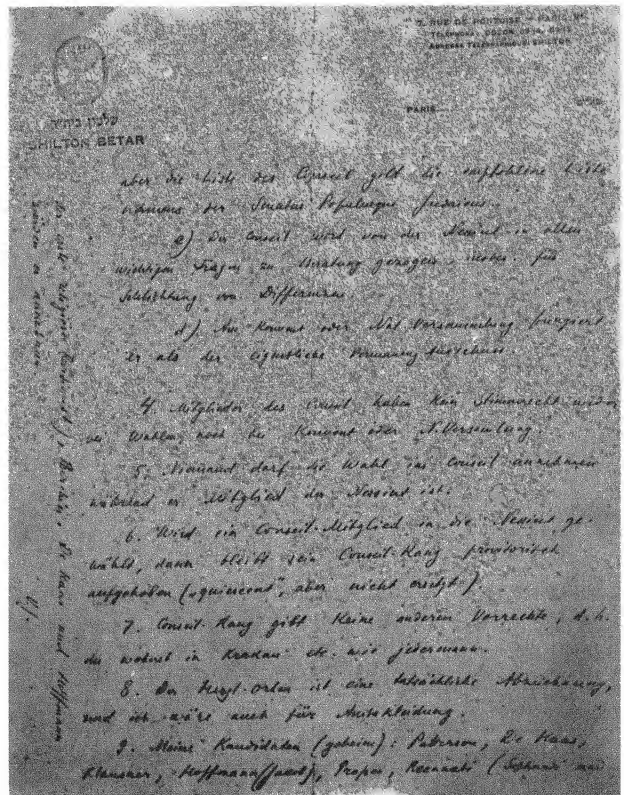 7, RUE DE PONTOISE - PARIS Vᵉ
שלטון בית״ר
SHILTON BETAR
PARIS
פריס
aber die Liste des Conseil gilt die empfohlene Liste
der Senatus Populusque Judaeorum.
c) Der Conseil wird von der Nessiut in allen
wichtigen Fragen zu Beratung gezogen für
Schlichtung von Differenzen.
d) Am Konvent oder Nat. Versammlung fungiert
er als der eigentliche Permanenz Ausschuss.
4. Mitglieder des Conseil haben kein Stimmrecht weder
bei Wahlen noch bei Konvent oder N. Versamlung.
5. Niemand darf die Wahl ins Conseil annehmen
während er Mitglied der Nessiut ist.
6. Wird ein Conseil-Mitglied in die Nessiut ge-
wählt, dann bleibt sein Conseil-Rang provisorisch
aufgehoben („quiescent", aber nicht ersetzt).
7. Conseil-Rang gibt keine anderen Vorrechte, d.h.
du wohnst in Krakau etc. wie jedermann.
8. Der Herzl-Orden ist eine tatsächliche Abzeichnung,
und ich wäre auch für Amtskleidung.
9. Meine Kandidaten (geheim): Paterson, De Haas,
Klausner, Hoffmann (Jacob), Propes, Recanati (
De Haas und Hoffmann
6/.
würden es annehmen